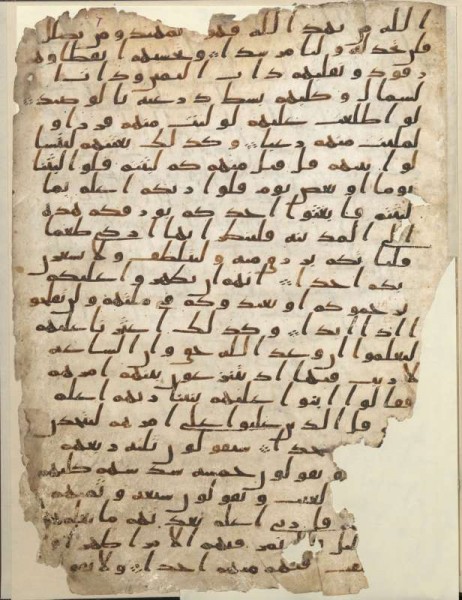 الله من يهد الله فهو المهتد ومن يضلل
فلن تجد له وليا مرشدا وتحسبهم ايقظا وهم
رقود ونقلبهم ذات اليمين وذات ا
لشمال وكلبهم بسط ذرعيه بالوصيد
لو اطلعت عليهم لوليت منهم فررا و
لملئت منهم رعبا وكذلك بعثنهم ليتسا
لوا بينهم قل قئل منهم كم لبثتم قلوا لبثنا
يوما او بعض يوم قلوا ربكم اعلم بما
لبثتم فابعثوا احدكم بورقكم هذه
الى المدينه فلينظر ايها ازكى طعما
فلياتكم برزق منه وليتلطف ولا يشعرن
بكم احدا انهم ان يظهروا عليكم
يرجموكم او يعيدوكم في ملتهم ولن تفلحو
ا اذا ابدا وكذلك اعثرنا عليهم
ليعلموا ان وعد الله حق وان الساعه
لا ريب فيها اذ يتنزعون بينهم امرهم
فقالوا ابنوا عليهم بنينا ربهم اعلم
قل الذين غلبوا على امرهم لنتخذن
جدا سيقولون ثلثه ربعهم
ويقولون خمسه سدسهم كلبهم
لغيب ويقولون سبعه وثمنهم
قل ربي اعلم بعدتهم ما يعلمهم
قليل فلا تمر فيهم الا مرا ظهرا
فيهم منهم احدا ولا تقو